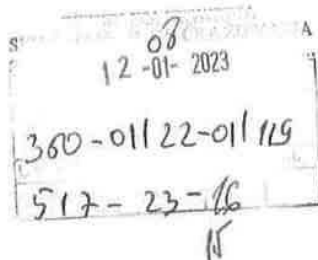 S A
08
12-01-2023
360-01/22-01/119
517-23-16
15